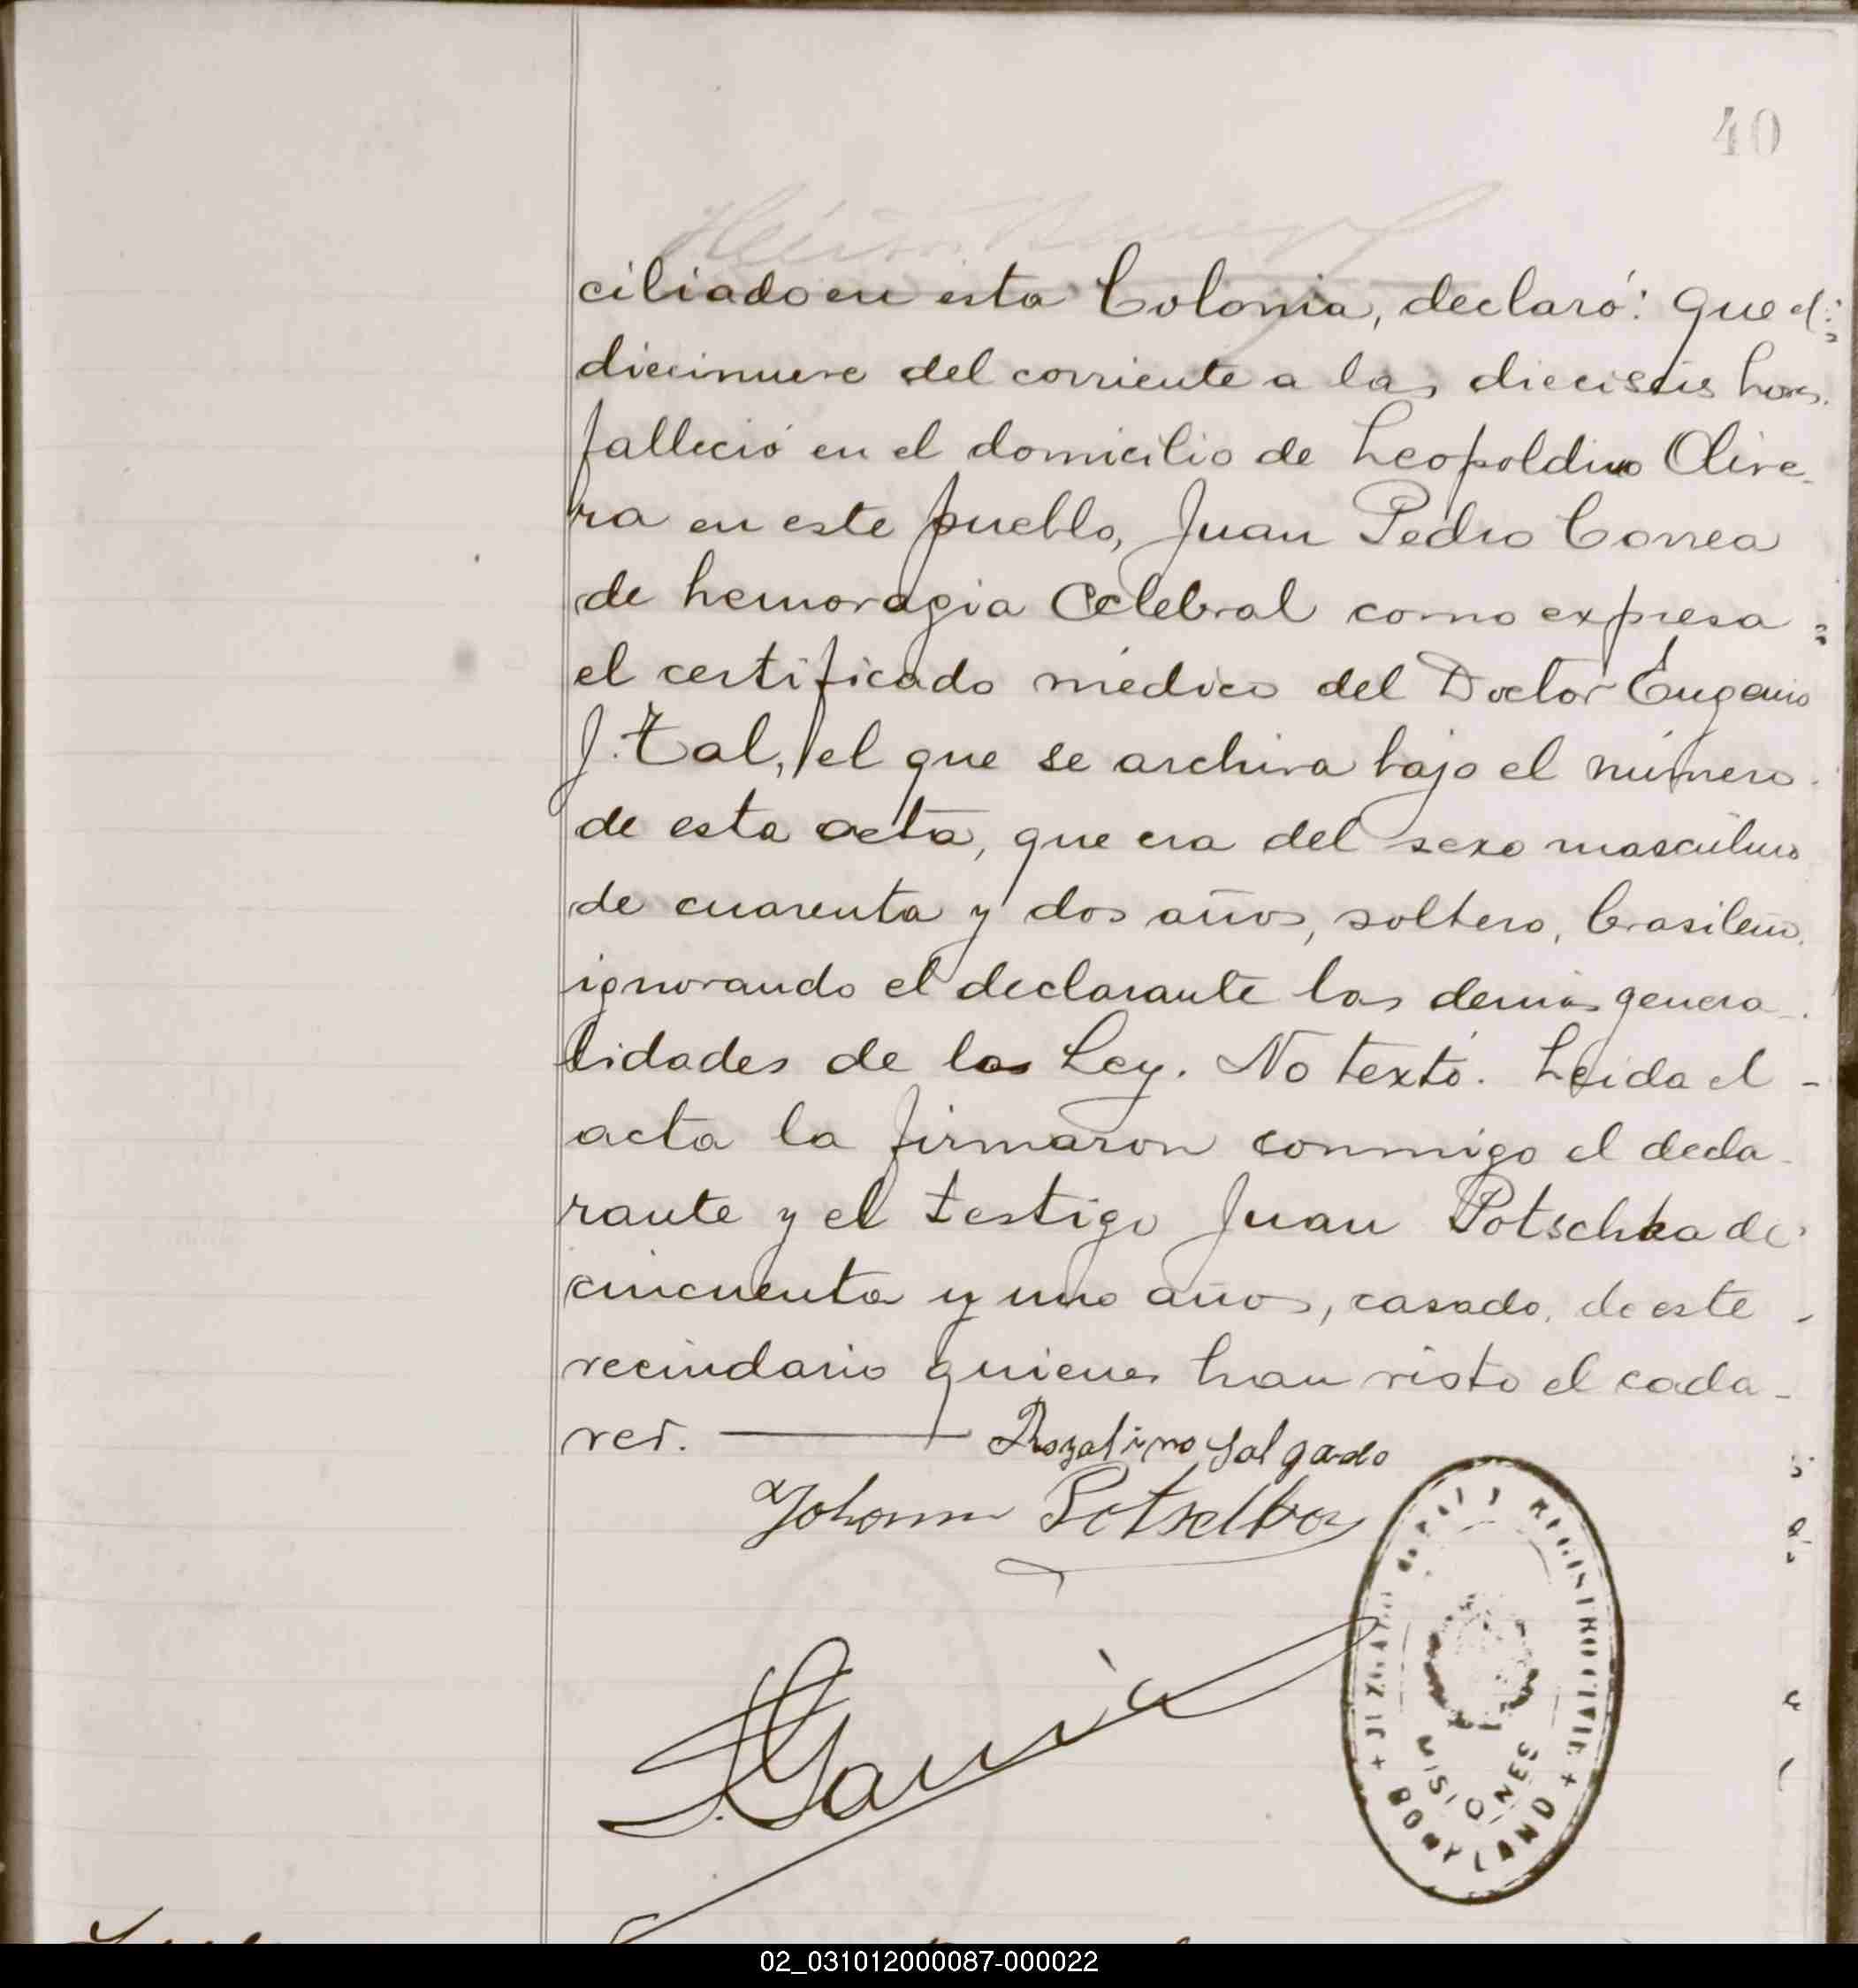 40
ciliado en esta Colonia, declaró: Que el
diecinueve del corriente a las dieciseis horas
falleció en el domicilio de Leopoldino Olive-
ra en este pueblo, Juan Pedro Correa
de hemoragia Celebral como expresa
el certificado médico del Doctor Eugenio
J. Tal, el que se archiva bajo el número
de esta acta, que era del sexo masculino
de cuarenta y dos años, soltero, brasileño,
ignorando el declarante las demás genera-
lidades de la Ley. No textó. Leida el
acta la firmaron conmigo el decla-
rante y el testigo Juan Potschka de
cincuenta y uno años, casado, de este
vecindario quienes han visto el cada-
ver. Rozalino Salgado
Johann Potschka
García
JUZGADO DE PAZ Y REGISTRO CIVIL
MISIONES
BONPLAND
02_031012000087-000022